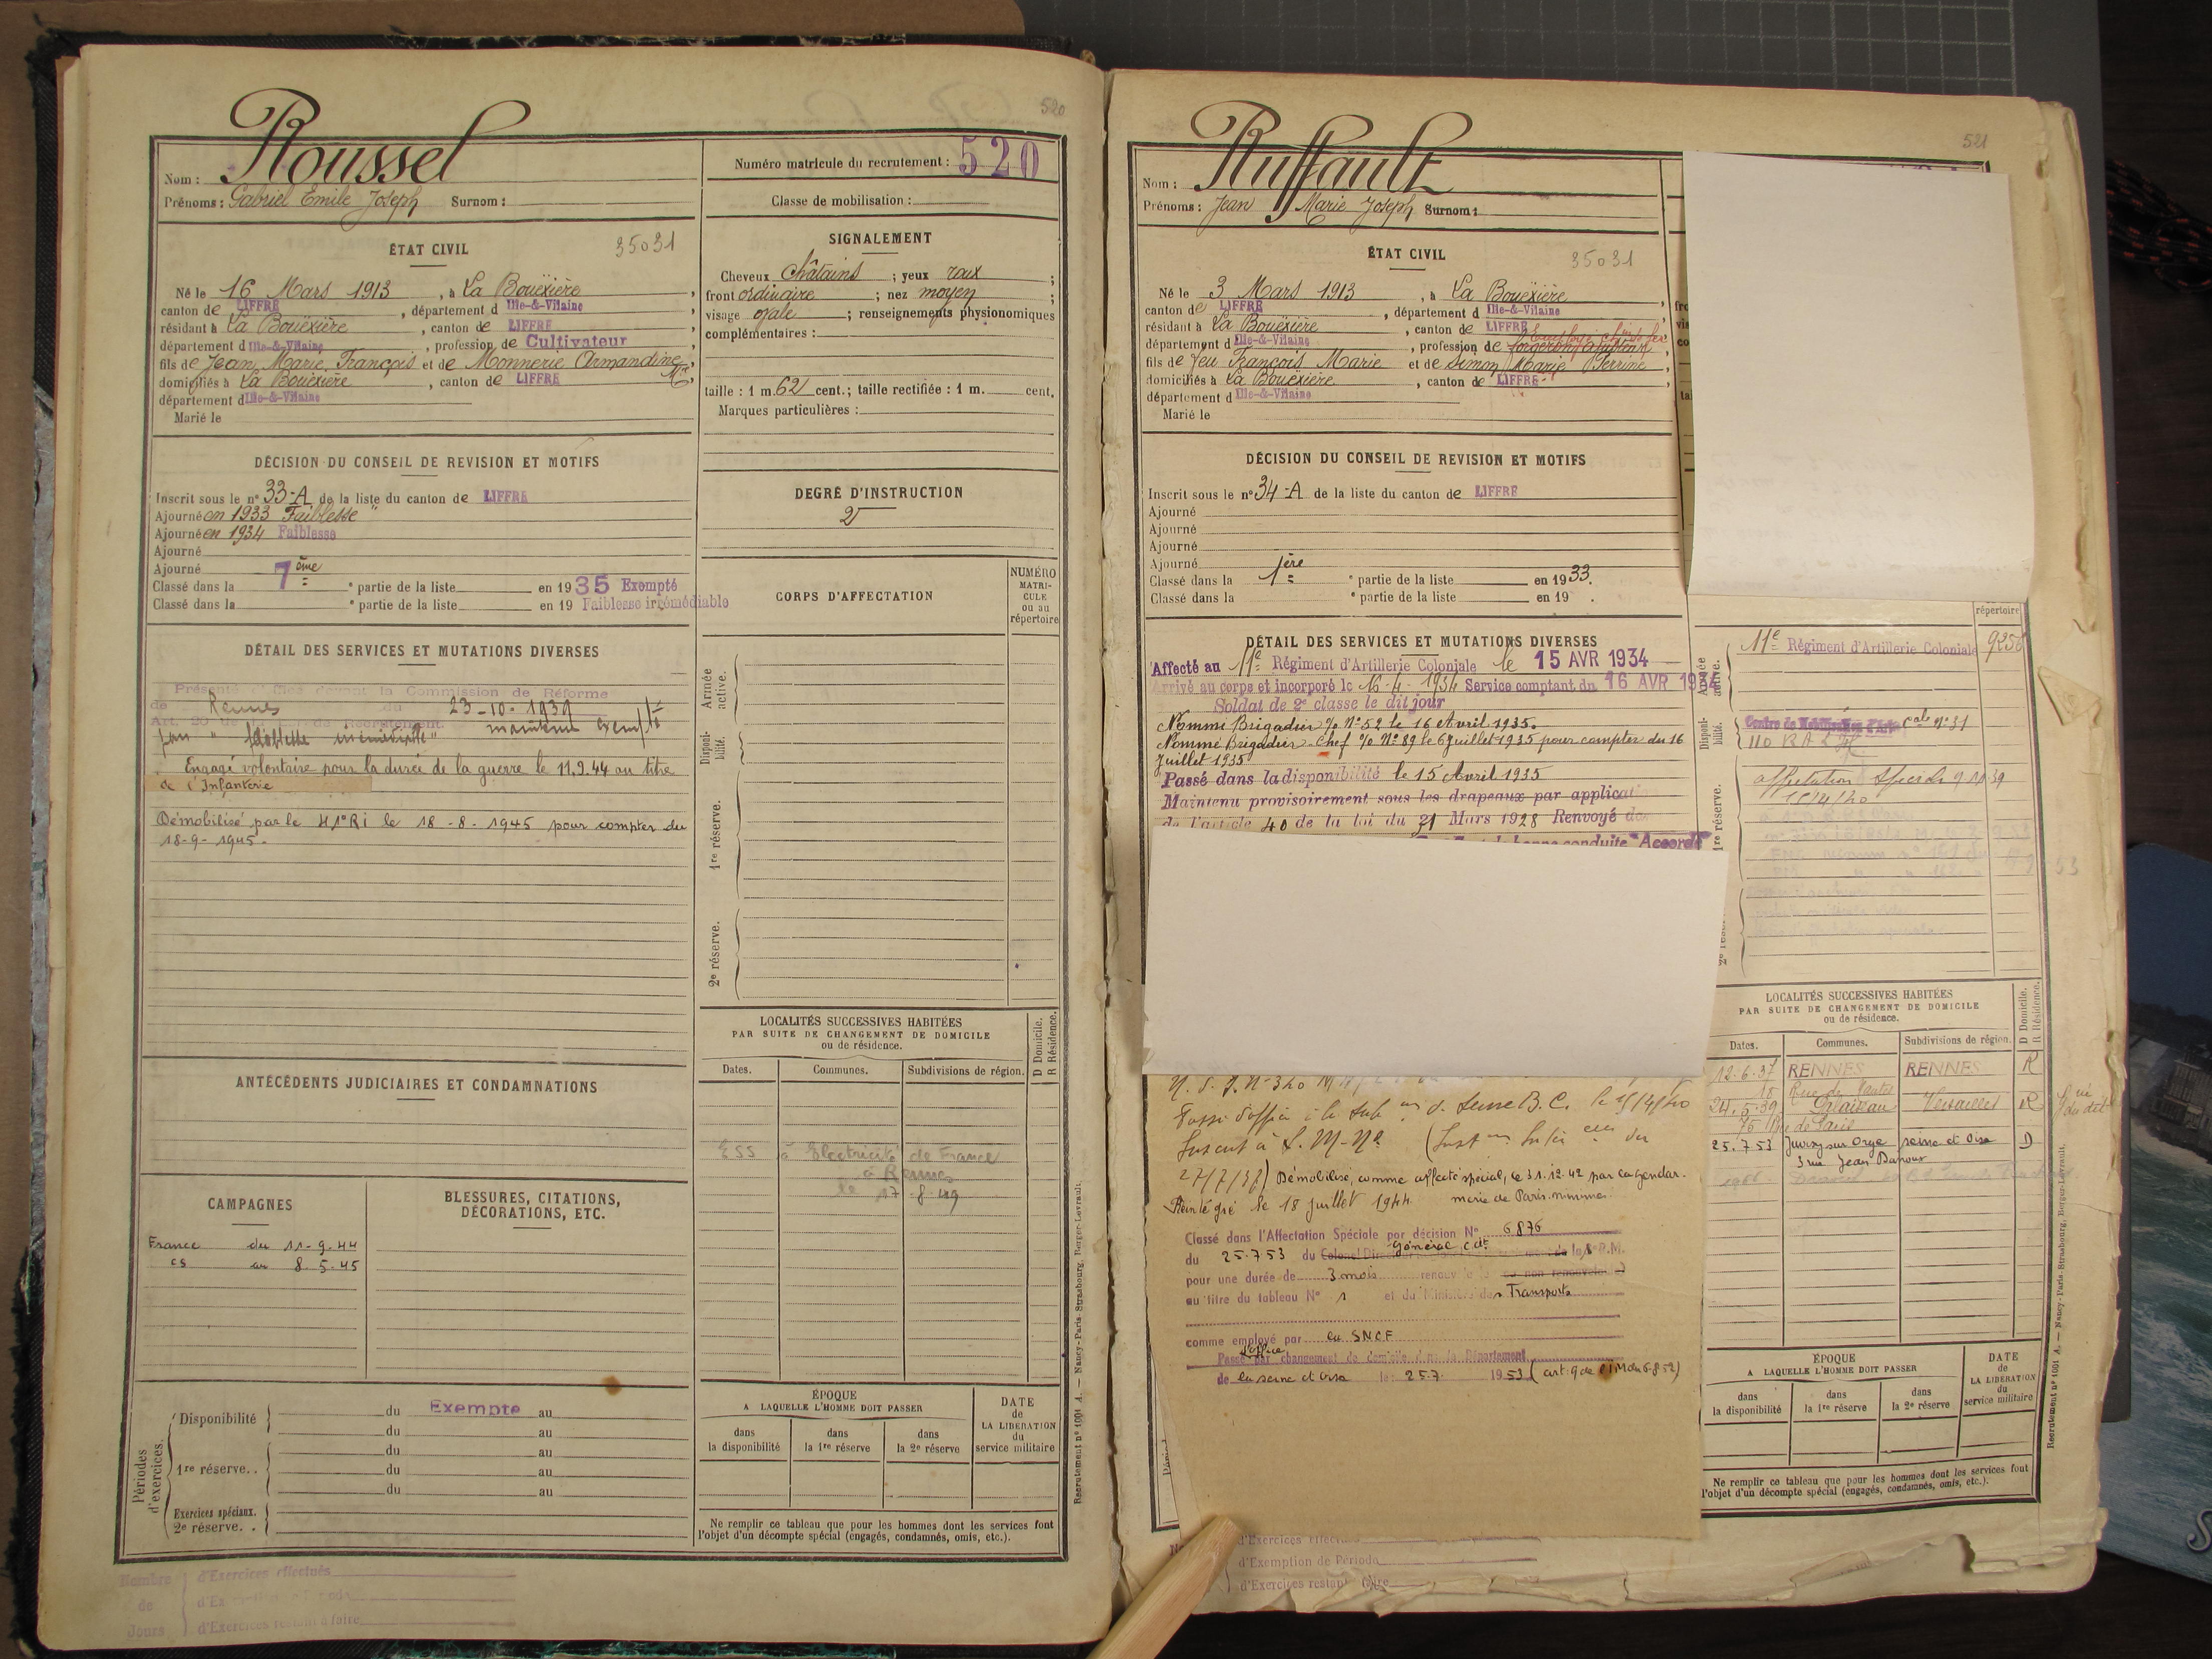 520
Nom : Roussel
Prénoms : Gabriel Emile Joseph Surnom :
Numéro matricule du recrutement : 520
Classe de mobilisation :
ÉTAT CIVIL
35031
Né le 16 Mars 1913, à La Bouëxière,
canton de LIFFRÉ, département d Ille-&-Vilaine
résidant à La Bouëxière, canton de LIFFRÉ
département d Ille-&-Vilaine, profession de Cultivateur
fils de Jean Marie François et de Monnerie Armandine
domiciliés à La Bouëxière, canton de LIFFRÉ,
département d Ille-&-Vilaine
Marié le
SIGNALEMENT
Cheveux châtains ; yeux roux ;
front ordinaire ; nez moyen ;
visage ovale ; renseignements physionomiques
complémentaires :
taille : 1 m. 62 cent. ; taille rectifiée : 1 m. cent.
Marques particulières :
DÉCISION DU CONSEIL DE REVISION ET MOTIFS
Inscrit sous le n° 33-A de la liste du canton de LIFFRÉ
Ajourné en 1933 "Faiblesse"
Ajourné en 1934 Faiblesse
Ajourné
Ajourné
Classé dans la 7ème partie de la liste en 1935 Exempté
Classé dans la e partie de la liste en 19 Faiblesse irrémédiable
DEGRÉ D'INSTRUCTION
2
DÉTAIL DES SERVICES ET MUTATIONS DIVERSES
Présenté d'office devant la Commission de Réforme
de Rennes du 23-10-1939
Art. 20 de la loi de Recrutement. maintenu exempté
pour "faiblesse irrémédiable"
Engagé volontaire pour la durée de la guerre le 11.9.44 au titre
de l'Infanterie
Démobilisé par le 41°RI le 18-8-1945 pour compter du
18-9-1945.
CORPS D'AFFECTATION
NUMÉRO MATRICULE ou au répertoire
Armée active.
Disponibilité.
1re réserve.
2e réserve.
LOCALITÉS SUCCESSIVES HABITÉES
PAR SUITE DE CHANGEMENT DE DOMICILE
ou de résidence.
D Domicile.
R Résidence.
Dates. Communes. Subdivisions de région.
ESS à Electricité de France
à Rennes
le 17-8-49
ANTÉCÉDENTS JUDICIAIRES ET CONDAMNATIONS
CAMPAGNES
France du 11-9-44
CS au 8.5.45
BLESSURES, CITATIONS,
DÉCORATIONS, ETC.
Périodes d'exercices.
Disponibilité du Exempté au
du au
1re réserve. . du au
du au
du au
Exercices spéciaux.
2e réserve. .
ÉPOQUE
A LAQUELLE L'HOMME DOIT PASSER
dans la disponibilité
dans la 1re réserve
dans la 2e réserve
DATE de LA LIBÉRATION du service militaire
Ne remplir ce tableau que pour les hommes dont les services font
l'objet d'un décompte spécial (engagés, condamnés, omis, etc.).
Nombre de Jours
d'Exercices effectués
d'Exercices restant à faire
Recrutement n° 1001 A. — Nancy-Paris-Strasbourg, Berger-Levrault.
521
Nom : Ruffault
Prénoms : Jean Marie Joseph Surnom :
ÉTAT CIVIL
35031
Né le 3 Mars 1913, à La Bouëxière,
canton de LIFFRÉ, département d Ille-&-Vilaine
résidant à La Bouëxière, canton de LIFFRÉ
département d Ille-&-Vilaine, profession de
fils de feu François Marie et de Simon Marie Perrine,
domiciliés à La Bouëxière, canton de LIFFRÉ
département d Ille-&-Vilaine
Marié le
DÉCISION DU CONSEIL DE REVISION ET MOTIFS
Inscrit sous le n° 34-A de la liste du canton de LIFFRÉ
Ajourné
Ajourné
Ajourné
Ajourné
Classé dans la 1ère partie de la liste en 1933.
Classé dans la e partie de la liste en 19 .
DÉTAIL DES SERVICES ET MUTATIONS DIVERSES
Affecté au 11e Régiment d'Artillerie Coloniale le 15 AVR 1934
Arrivé au corps et incorporé le 16-4-1934 Service comptant du 16 AVR 1934
Soldat de 2e classe le dit jour
Nommé Brigadier % N° 52 le 16 Avril 1935.
Nommé Brigadier-Chef % N° 89 le 6 Juillet 1935 pour compter du 16
Juillet 1935
Passé dans la disponibilité le 15 Avril 1935
Maintenu provisoirement sous les drapeaux par applicat
de l'article 40 de la loi du 21 Mars 1928 Renvoyé da
bonne conduite "Accordé
répertoire
11e Régiment d'Artillerie Coloniale 9258
Armée active.
Disponibilité.
1re réserve.
cale N°31
affectation Spéciale 9.11.39
15/4/40
LOCALITÉS SUCCESSIVES HABITÉES
PAR SUITE DE CHANGEMENT DE DOMICILE
ou de résidence.
D Domicile.
R Résidence.
Dates. Communes. Subdivisions de région.
12-6-37 RENNES RENNES R
24.5.39 Palaiseau Versailles R
75 Rue de Paris
25.7.53 Juvisy sur Orge seine et Oise D
3 rue Jean Danoux
Passé d'office à la sub on d. Seine B.C. le 15/4/40
27/7/37) Démobilisé, comme affecté spécial, le 31.12.42 par la gendar-
merie de Paris-minimes.
Réintégré le 18 juillet 1944
Classé dans l'Affectation Spéciale par décision N° 6876
du 25-7-53 du Général Cdt la 1e R.M.
pour une durée de 3 mois renouvelable
au titre du tableau N° 1 et du Ministère des Transports
comme employé par la SNCF
d'office
Passé par changement de domicile dans le Département
de la seine et Oise le : 25.7. 1953 (art. 9 de l'IM du 6.8.52)
ÉPOQUE
A LAQUELLE L'HOMME DOIT PASSER
dans la disponibilité
dans la 1re réserve
dans la 2e réserve
DATE de LA LIBÉRATION du service militaire
Ne remplir ce tableau que pour les hommes dont les services font
l'objet d'un décompte spécial (engagés, condamnés, omis, etc.).
d'Exercices effectués
d'Exemption de Période
d'Exercices restant à faire
Recrutement n° 1001 A. — Nancy-Paris-Strasbourg, Berger-Levrault.